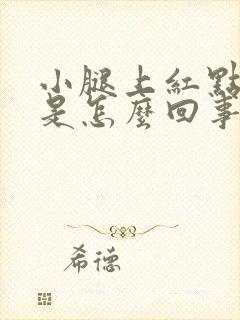 小腿上紅點
是怎麼回事
希德